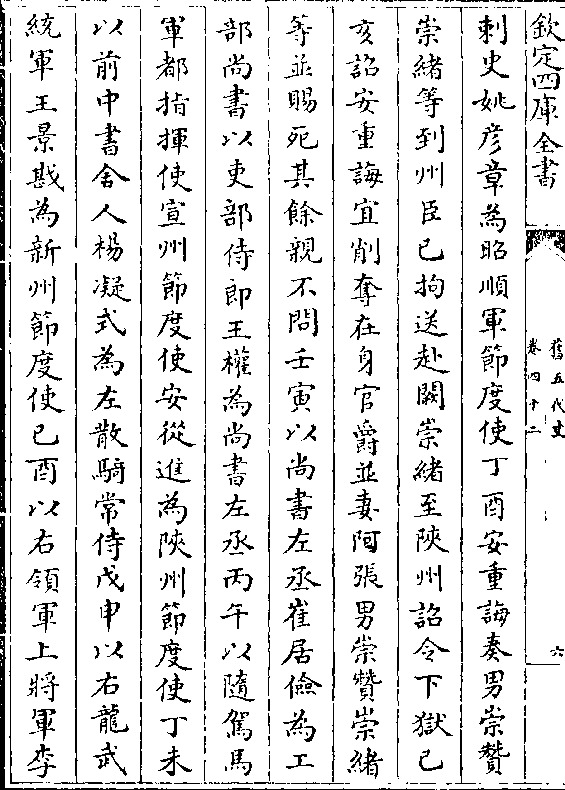 欽定四庫全書
舊五代史
卷四十二
六
刺史姚彦章為昭順軍節度使丁酉安重誨奏男崇贊
崇緒等到州臣已拘送赴闕崇緒至陜州詔令下獄己
亥詔安重誨宜削奪在身官爵並妻阿張男崇贊崇緒
等並賜死其餘親不問壬寅以尚書左丞崔居儉為工
部尚書以吏部侍郎王權為尚書左丞丙午以隨駕馬
軍都指揮使宣州節度使安從進為陜州節度使丁未
以前中書舍人楊凝式為左散騎常侍戊申以右龍武
統軍王景戡為新州節度使己酉以右領軍上將軍李